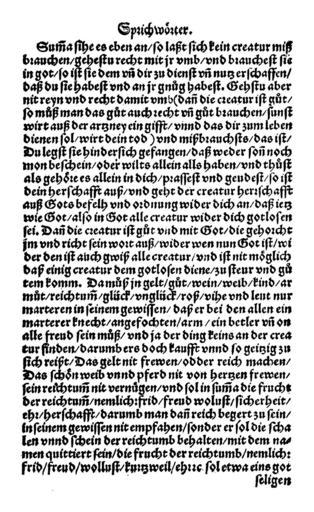 Sprichwörter.
Suma sihe es eben an/so laßt sich kein creatur miß
brauchen/gehestu recht mit jr vmb/vnd brauchest sie
in got/so ist sie dem vñ dir zu dienst vñ nutz erschaffen/
daß du sie habest vnd an jr gnůg habest. Gehstu aber
nit reyn vnd recht damit vmb(dañ die creatur ist gůt/
so můß man das gůt auch recht vñ gůt brauchen/sunst
wirt auß der artzney ein gifft/vnnd das dir zum leben
dienen sol/wirt dein tod) vnd mißbrauchsts/das ist/
Du legst sie hindersich gefangen/daß weder son noch
mon beschein/oder wilts allein alls haben/vnd thůst
als gehöre es allein in dich/prassest vnd geudest/so ist
dein herschafft auß/vnd geht der creatur herschafft
auß Gots befelh vnd ordnung wider dich an/daß ietz
wie Got/also in Got alle creatur wider dich gotlosen
sei. Dañ die creatur ist gůt vnd mit Got/die gehorcht
jm vnd richt sein wort auß/wider wen nun Got ist/wi
der den ist auch gwiß alle creatur/vnd ist nit möglich
daß einig creatur dem gotlosen diene/zu steur vnd gů
tem komm. Da můß jn gelt/gůt/wein/weib/kind/ar
můt/reichtum̃/glück/vnglück/roß/vihe vnd leut nur
marteren in seinem gewissen/daß er bei den allen ein
marterer knecht/angefochten/arm/ein betler vñ on
alle freud sein můß/vnd ja der ding keins an der crea
tur finden/darumb ers doch kaufft vnnd so geitzig zu
sich reißt. Das gelt nit frewen/odder reich machen/
Das schön weib vnnd pferd nit von hertzen frewen/
sein reichtum̃ nit vernügen/vnd sol in sum̃a die frucht
der reichtum̃/nemlich:frid/freud wolust/sicherheit/
ehr/herschafft/darumb man dañ reich begert zu sein/
in seinem gewissen nit empfahen/sonder er sol die scha
len vnnd schein der reichtumb behalten/mit dem na-
men quittiert sein/die frucht der reichtumb/nemlich:
frid/freud/wollust/kurtzweil/ehrꝛc sol etwa eins got
seligen